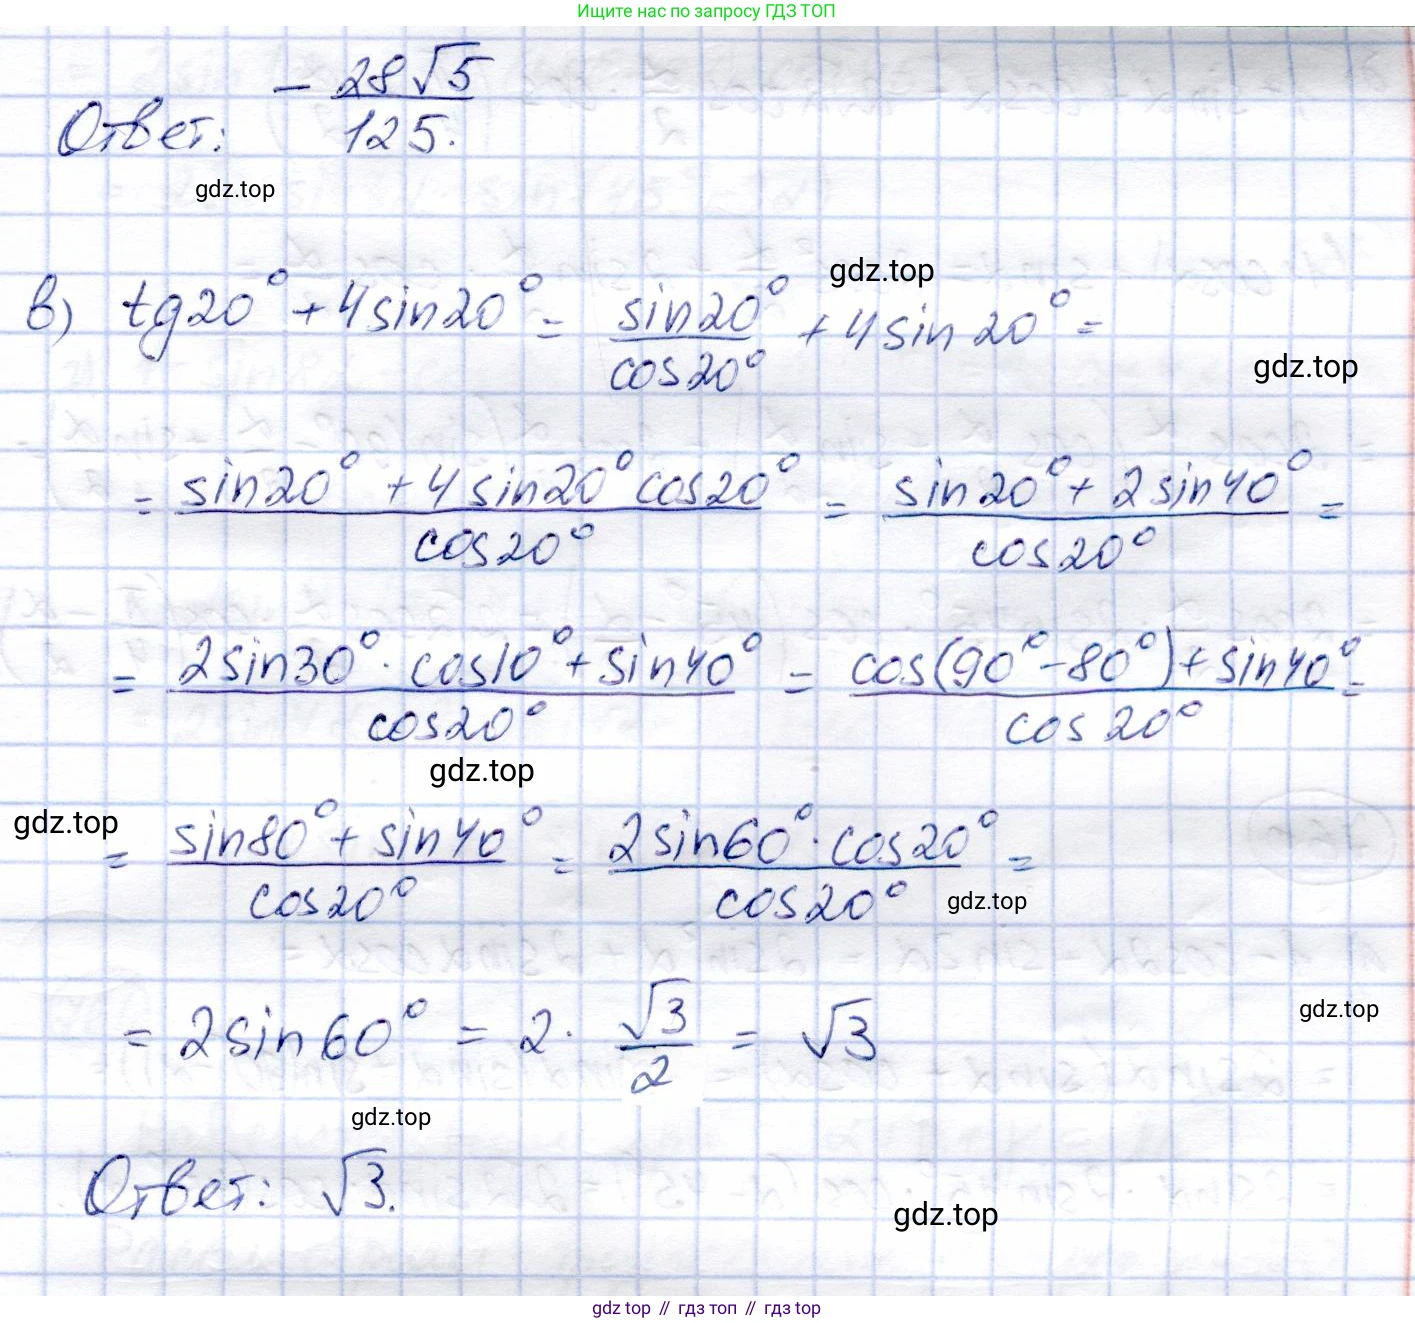 Ищите нас по запросу ГДЗ ТОП
Ответ: - 28√5 / 125.
gdz.top
в) tg20° + 4sin20° = sin20° / cos20° + 4sin20° =
gdz.top
gdz.top
= (sin20° + 4sin20°cos20°) / cos20° = (sin20° + 2sin40°) / cos20° =
= (2sin30° · cos10° + sin40°) / cos20° = (cos(90° - 80°) + sin40°) / cos20° =
gdz.top
gdz.top
= (sin80° + sin40°) / cos20° = (2sin60° · cos20°) / cos20° =
gdz.top
gdz.top
= 2sin60° = 2 · √3 / 2 = √3
gdz.top
Ответ: √3.
gdz.top
gdz top // гдз топ // гдз top